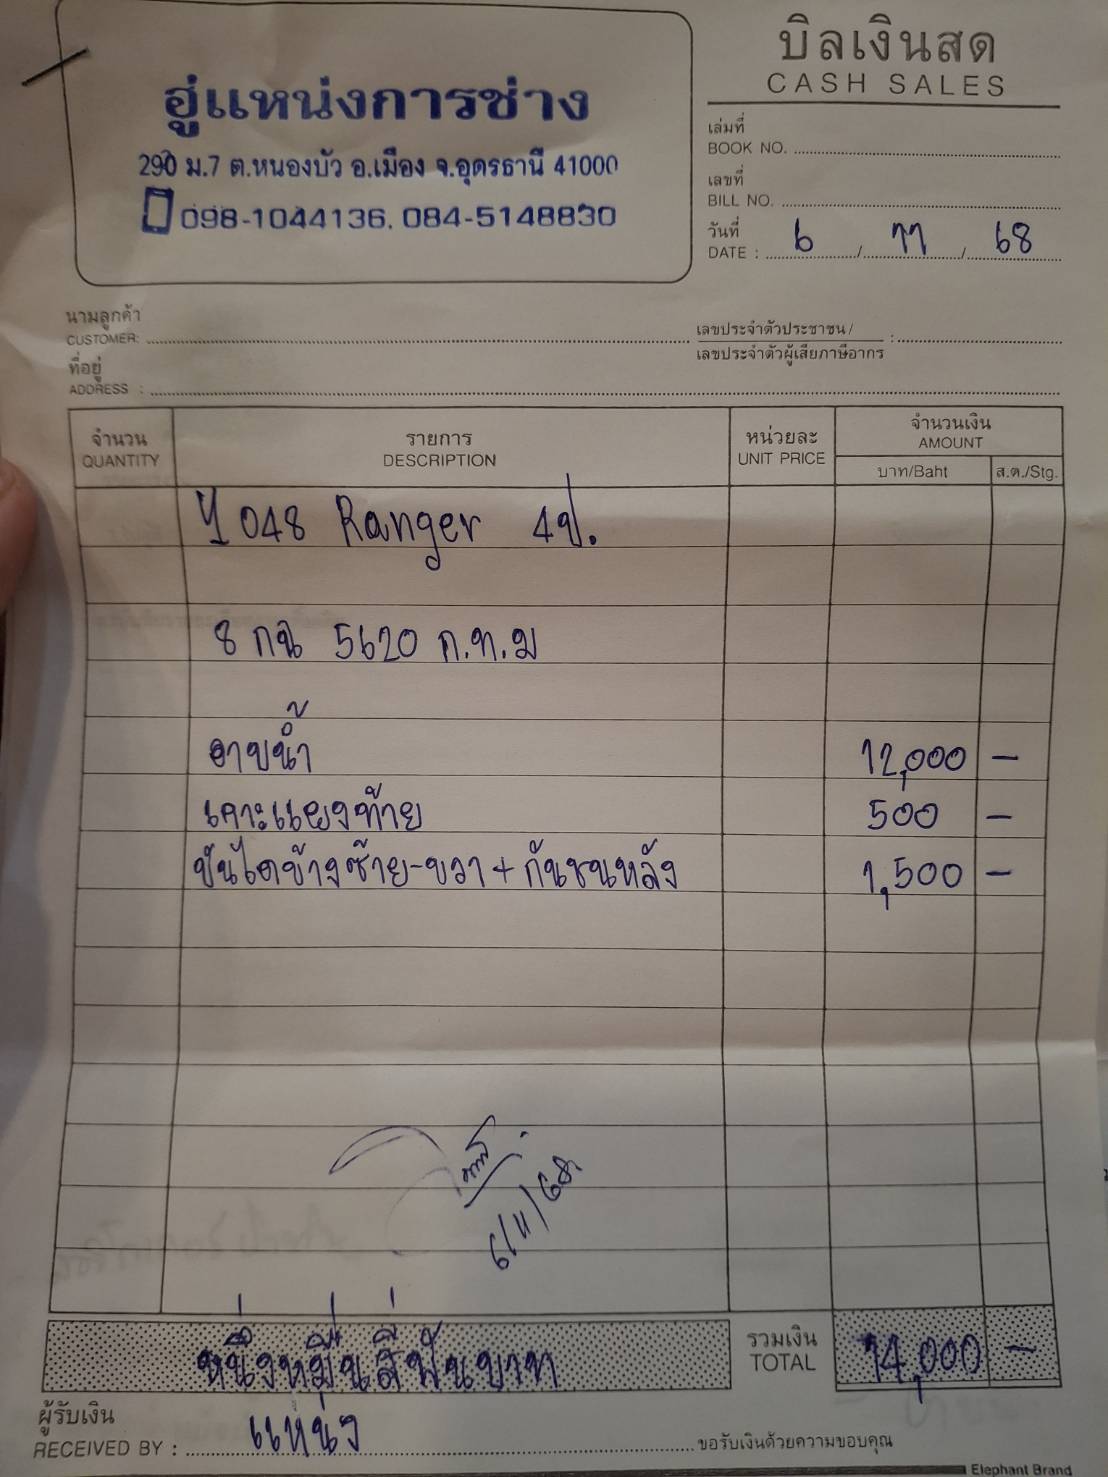 บิลเงินสด
CASH SALES
อู่แหน่งการช่าง
290 ม.7 ต.หนองบัว อ.เมือง จ.อุดรธานี 41000
098-1044136, 084-5148830
เล่มที่
BOOK NO.
เลขที่
BILL NO.
วันที่
DATE : 6 / 11 / 68
นามลูกค้า
CUSTOMER:
เลขประจำตัวประชาชน /
เลขประจำตัวผู้เสียภาษีอากร :
ที่อยู่
ADDRESS :
จำนวน รายการ หน่วยละ จำนวนเงิน
QUANTITY DESCRIPTION UNIT PRICE AMOUNT
บาท/Baht ส.ต./Stg.
048 Ranger 4ป.
8 กฉ 5620 ก.ท.ม
อาบน้ำ 12,000 -
เคาะแผงท้าย 500 -
บันไดข้างซ้าย-ขวา + กันชนหลัง 1,500 -
6/11/68
หนึ่งหมื่นสี่พันบาท
รวมเงิน
TOTAL 14,000 -
ผู้รับเงิน
RECEIVED BY : แหน่ง ขอรับเงินด้วยความขอบคุณ
Elephant Brand